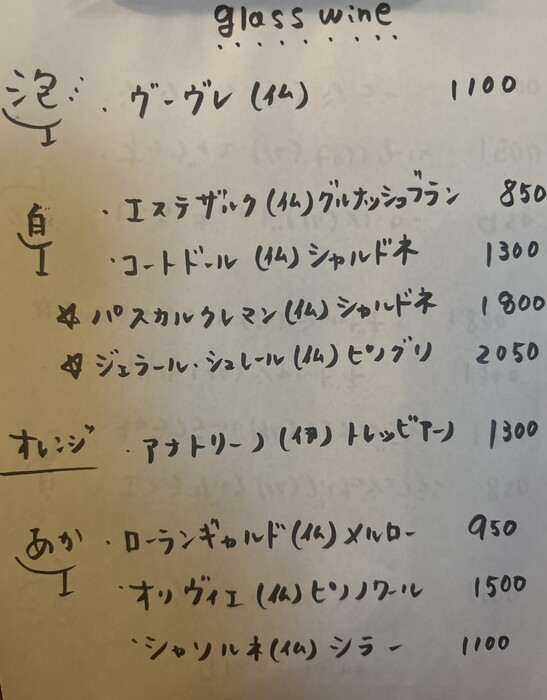 glass wine
泡 ・ヴーヴレ (仏) 1100
白 ・エステザルク (仏) グルナッシュブラン 850
・コートドール (仏) シャルドネ 1300
☆パスカルクレマン (仏) シャルドネ 1800
☆ジェラール・シュレール (仏) ピノグリ 2050
オレンジ ・アナトリーノ (伊) トレッビアーノ 1300
あか ・ローランギャルド (仏) メルロー 950
・オリヴィエ (仏) ピノノワール 1500
・シャソルネ (仏) シラー 1100